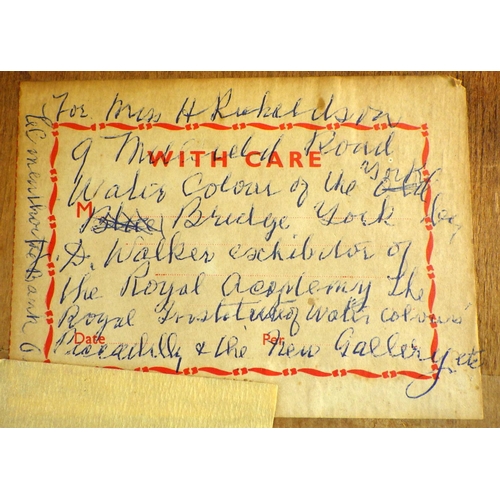 For Miss H Richardson
9 Road
WITH CARE
Water Colour of the York
M Bridge York by
D. Walker exhibitor of
the Royal Academy the
Royal Institut of Water colours
Date Per
Piccadilly & the New Gallery etc